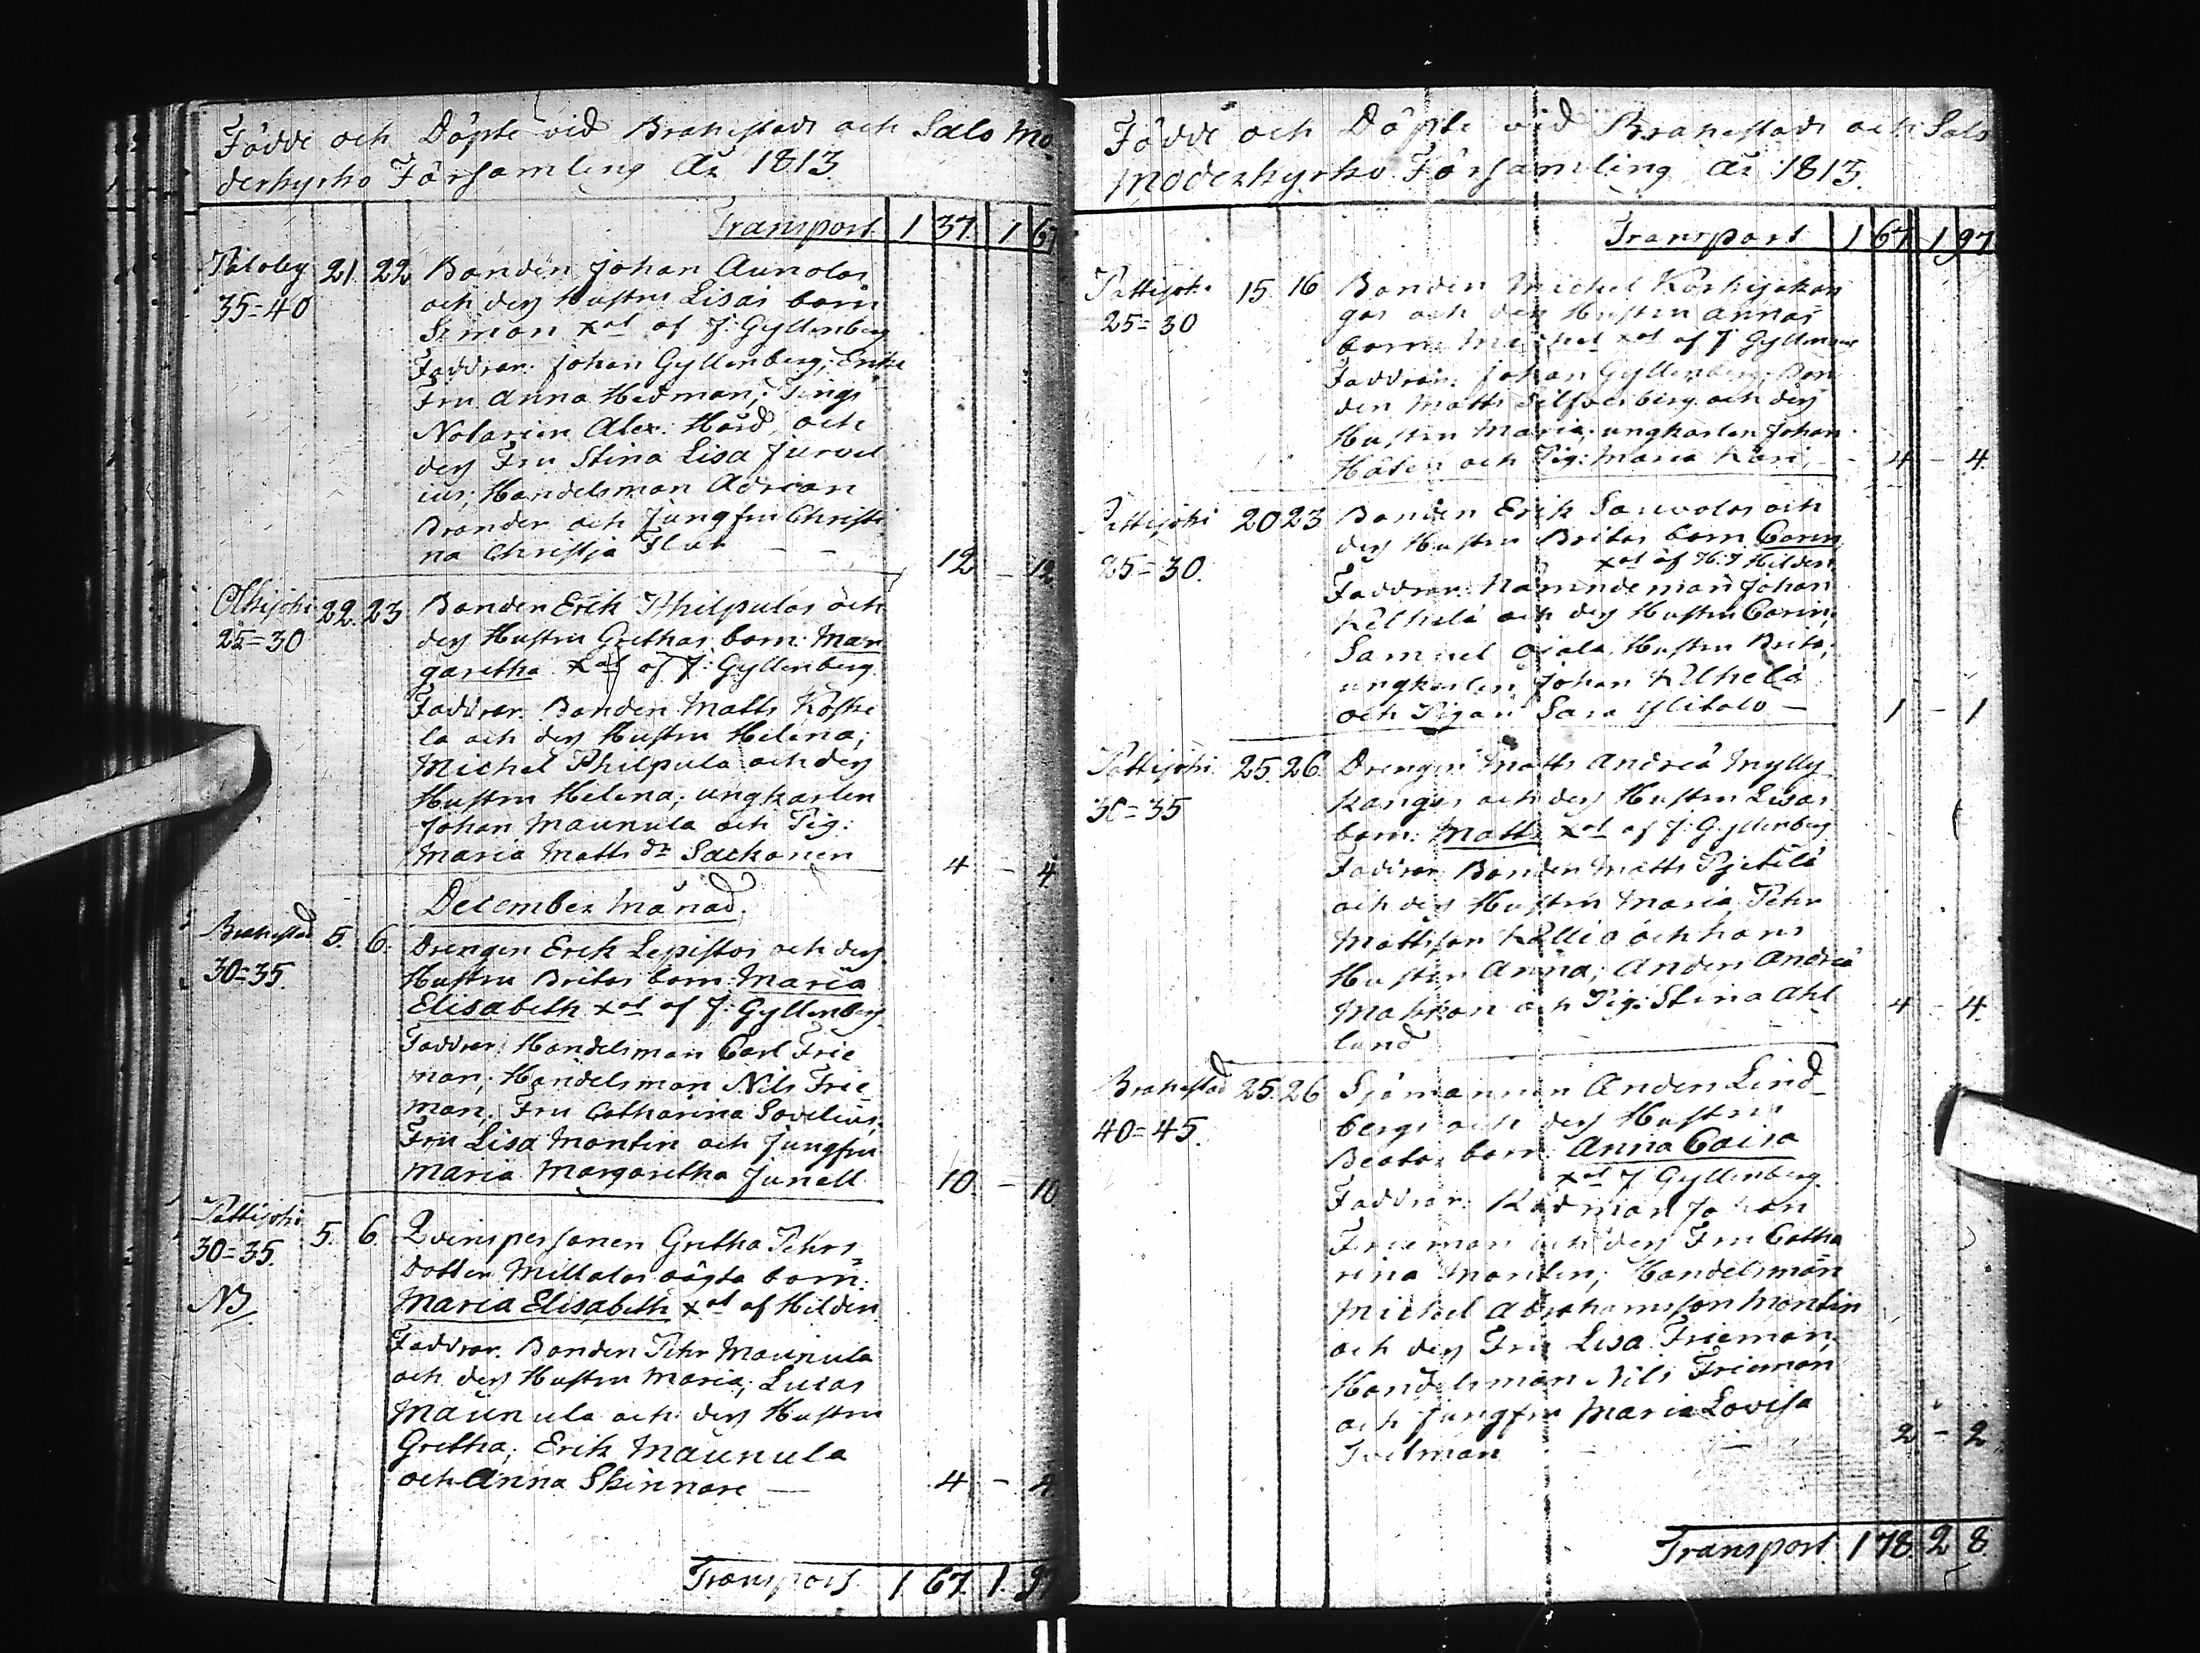 Födde och Döpte vid Brahestads och Salo Mo-
derkyrko Församling År 1813.
Transport. 1 37. 1 67
Paloby 21. 22 Bonden Johan Aunolas
35=40 och dess Hustru Lisas barn
Simon xat af J: Gyllenberg
Faddrar: Johan Gyllenberg; Enke
Fru Anna Hedman; Tings
Notarien Alex: Hård och
dess Fru Stina Lisa Jurvel
ius; Handelsman Adrian
Brander och Jungfru Christi
na Christja - - 12 - 12
Olkijoki 22. 23 Bonden Erik Philpulas och
25=30 dess Hustru Grethas barn: Mar
garetha xat af J: Gyllenberg
Faddrar. Bonden Matts Koske
la och dess Hustru Helena;
Michel Philpula och dess
Hustru Helena; ungkarlen
Johan Maunula och Pig:
Maria Matts dr Sackonen 4 - 4
December Månad.
Brahestad 5. 6. Drengen Erik Lepistös och dess
30=35. Hustru Britas barn: Maria
Elisabeth xat af J: Gyllenberg
Faddrar: Handelsman Carl Frie
man; Handelsman Nils Frie-
man; Fru Catharina Sovelius,
Fru Lisa Montin och Jungfru
Maria Margaretha Junell 10 - 10
Pattijoki 5. 6. Qvinspersonen Gretha Pehrs
30=35. dotter Mellalas oägta barn:
NB. Maria Elisabeth xat af Hilden
Faddrar. Bonden Pehr Maunula
och dess Hustru Maria; Lucas
Maunula och dess Hustru
Gretha; Erik Maunula
och Anna Skinnare — 4 - 4
Transport 1 67. 1. 97
Födde och Döpte vid Brahestads och Salo
Moderkyrko Församling År 1813.
Transport 1 67 1 97
Pattijoki 15. 16 Bonden Michel Korhjokan
25=30 gas och dess Hustru Annas
barn: Michel xat af J Gyllenberg
Faddrar: Johan Gyllenberg; Bon
den Matts Silfverberg och dess
Hustru Maria; ungkarlen Johan
och Pig: Maria Kari - 4 - 4.
Pattijoki 20 23 Bonden Erik Sauvolas och
25=30. dess Hustru Britas barn Carin
xat af H: J Hilden
Faddrar: Nämndeman Johan
Kelhelä och dess Hustru Carin;
Samuel Ojala Hustru Brita;
ungkarlen Johan Kelhelä
och Pigan Sara Ylitalo — 1 - 1
Pattijoki 25. 26. Drengen Matts Andreä Mylly
30=35 kangas och dess Hustru Lisas
barn: Matts xat af J: Gyllenberg
Faddrar Bonden Matts Pjetilä
och dess Hustru Maria, Pehr
Mattsson Kallio och hans
Hustru Anna; Anders Andreä
och Pig: Stina Ahl 4 - 4.
lund
Brahestad 25. 26 Sjömannen Anders Lind-
40=45. bergs och dess Hustru
Beatas barn Anna Caisa
xat J Gyllenberg
Faddrar: Rådman Johan
Frieman och dess Fru Catha
rina Montin; Handelsman
Michel Abrahamsson Montin
och dess Fru Lisa Frieman;
Handelsman Nils Frieman
och Jungfru Maria Lovisa
— 2 - 2
Transport. 1 78. 2 8.